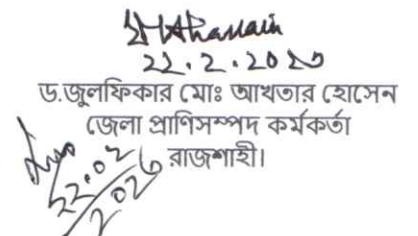 22.2.2026
ড.জুলফিকার মোঃ আখতার হোসেন
জেলা প্রাণিসম্পদ কর্মকর্তা
রাজশাহী।
22.02
2026